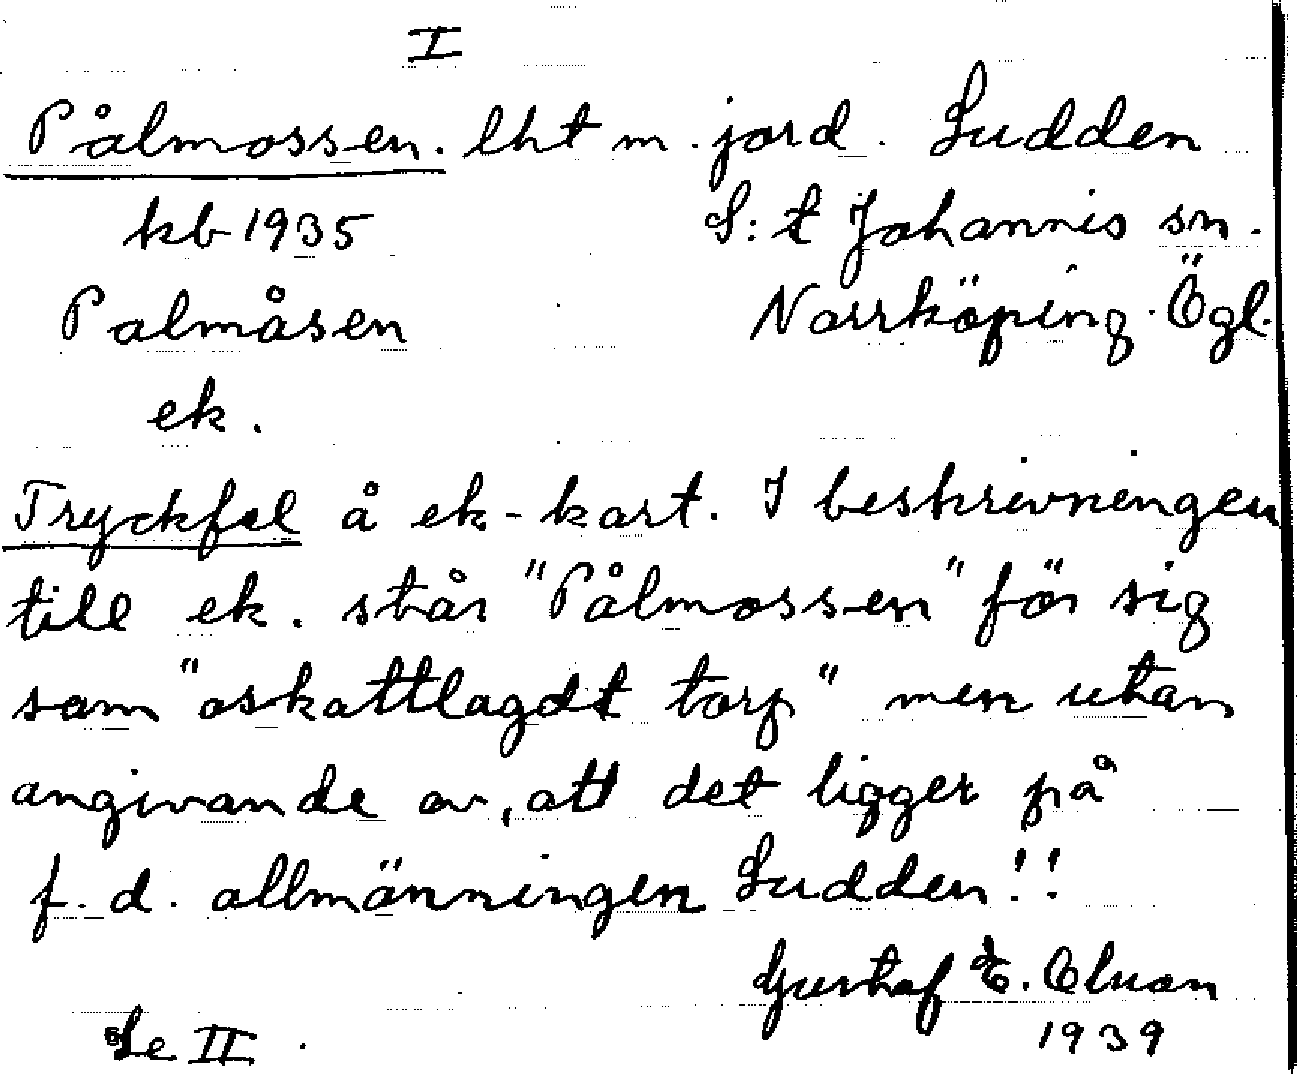 I
Pålmossen. lht m. jord. Sudden
kb 1935 S:t Johannis sn.
Palmåsen Norrköping. Ögl.
ek.
Tryckfel å ek-kart. I beskrivningen
till ek. står "Pålmossen" för sig
som "oskattlagdt torp" men utan
angivande av, att det ligger på
f.d. allmänningen Sudden!!
Gustaf E.
1939
Se II.